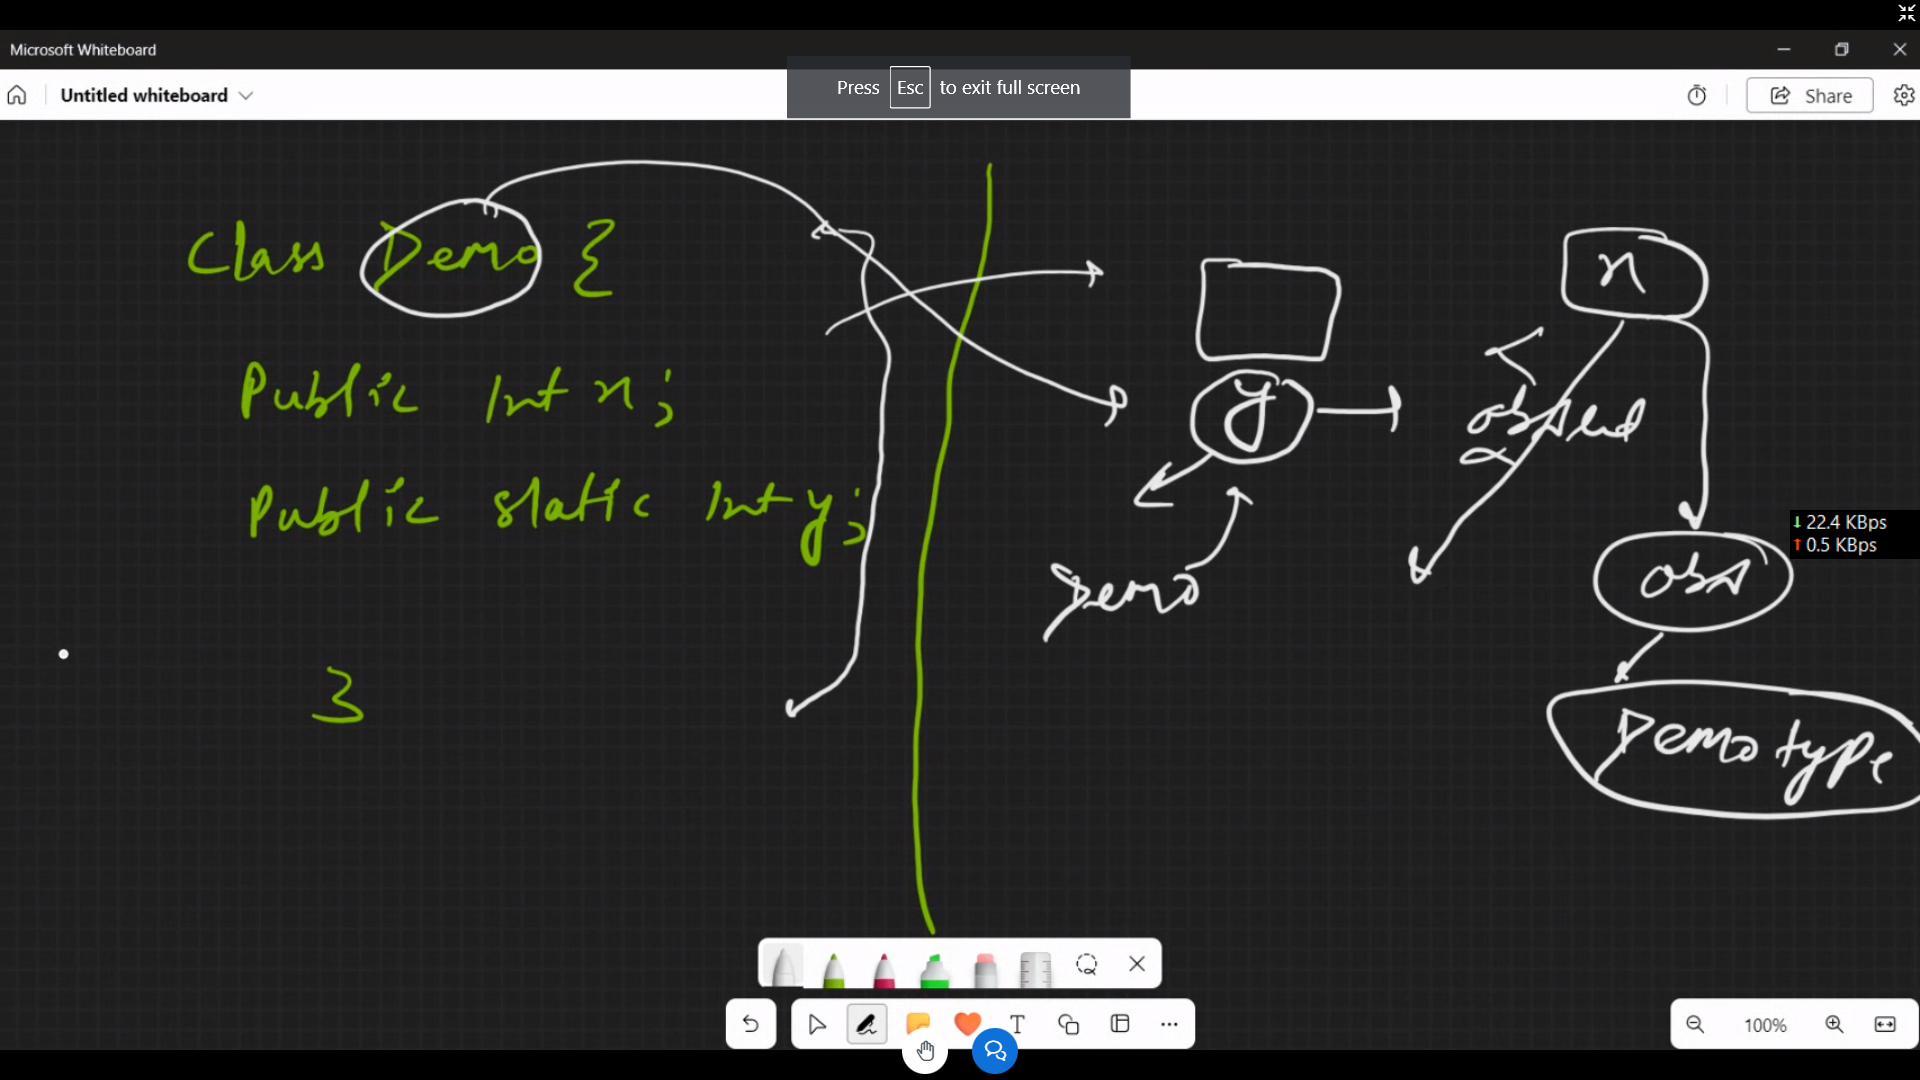 Microsoft Whiteboard
Untitled whiteboard
Press Esc to exit full screen
Share
Class Demo {
Public Int x;
Public static Int y;
}
y
Demo
x
obj
Demo type
↓ 22.4 KBps
↑ 0.5 KBps
T
100%